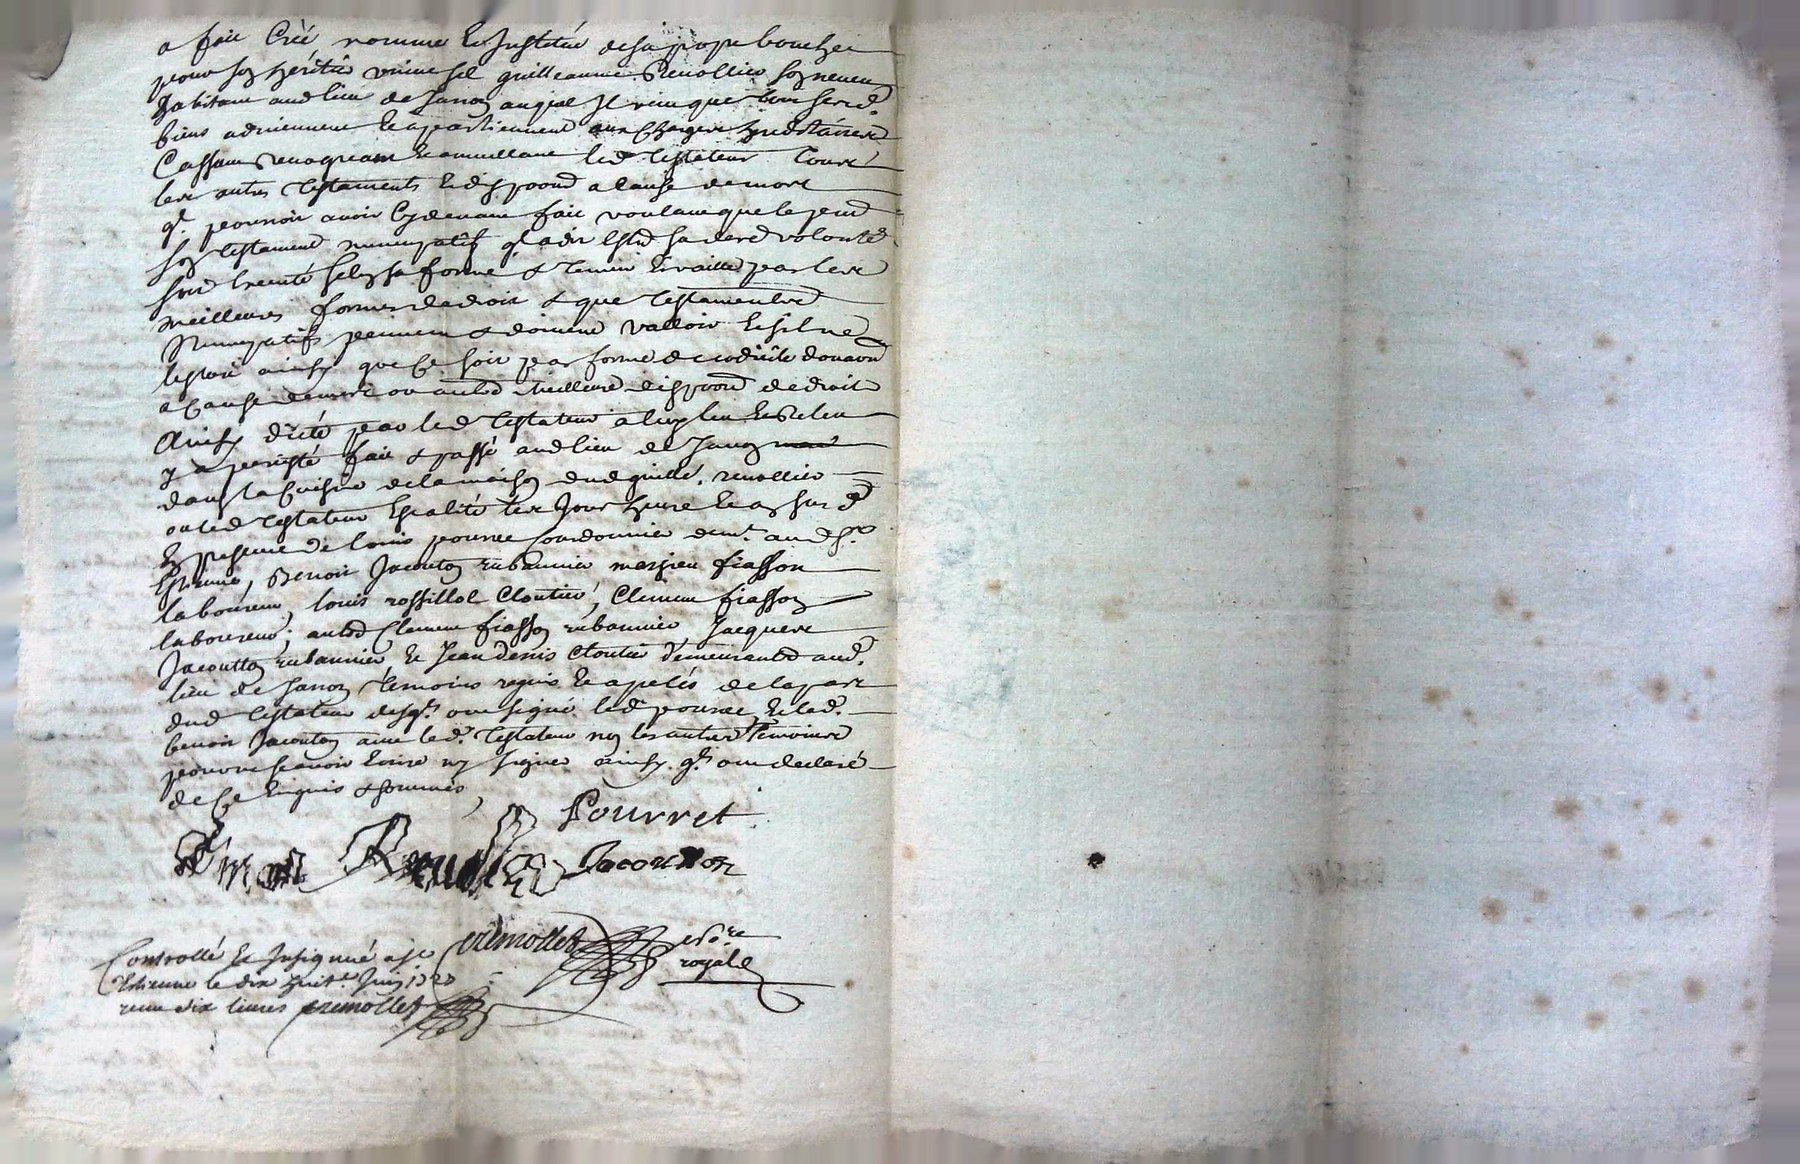 a fait Créé nommé et Institué de sa propre bouche
pour son héritier universel guilleaume Renollier son neveu
habitant aud lieu de Janon auquel Il veut que tous sesd
biens adviennent et apartiennent aux Charges héréditaires
Cassant revoquant et annullant led testateur tous
les autres testaments et dispoond a Cause de mort
qt pourroit avoir Cydevant fait voulant que le pnt
son testament nuncupatif qt a dit estre sa dere volonté
soit Executé selon sa forme & teneur Et vaille par les
meilleures formes de droit & que testamentsd
Nuncupatifs peuvent & doivent valloir Et sil ne
lestoit ainsy que Ce soit par forme de codicile donaon
a Cause de mort ou autre Meilleure dispoon de droit
Ainsy dicté par led testateur a luy leu Et releu
y a percisté fait & passé aud lieu de Janon
dans la Cuisine de la maison dud guille. renollier
ou led testateur Est alité les Jour heure Et an susd
En presence de louis pourret Cordonnier demt. aud St
Estienne, Benoit Jacouton rubannier mathieu fiasson
laboureur, louis rossillol Cloutier, Clement fiasson
laboureur; autre Clement fiasson rubannier Jacques
Jacoutton rubannier et Jean denis Cloutier demeurants aud.
lieu de Janon temoins requis et apelés de la part
dud testateur desqs. ont signé led pourret, Et led.
benoit Jacouton avec led. testateur non les autres temoins
pour ne scavoir Ecrire ny signer ainsy qls ont declaré
de Ce Enquis & sommés
Pourret
Simon Renollier Jacouton
cremollet no.re
royal
Controllé et Insignué a St
Etienne le dix huit.e Juin
receu dix livres cremollet